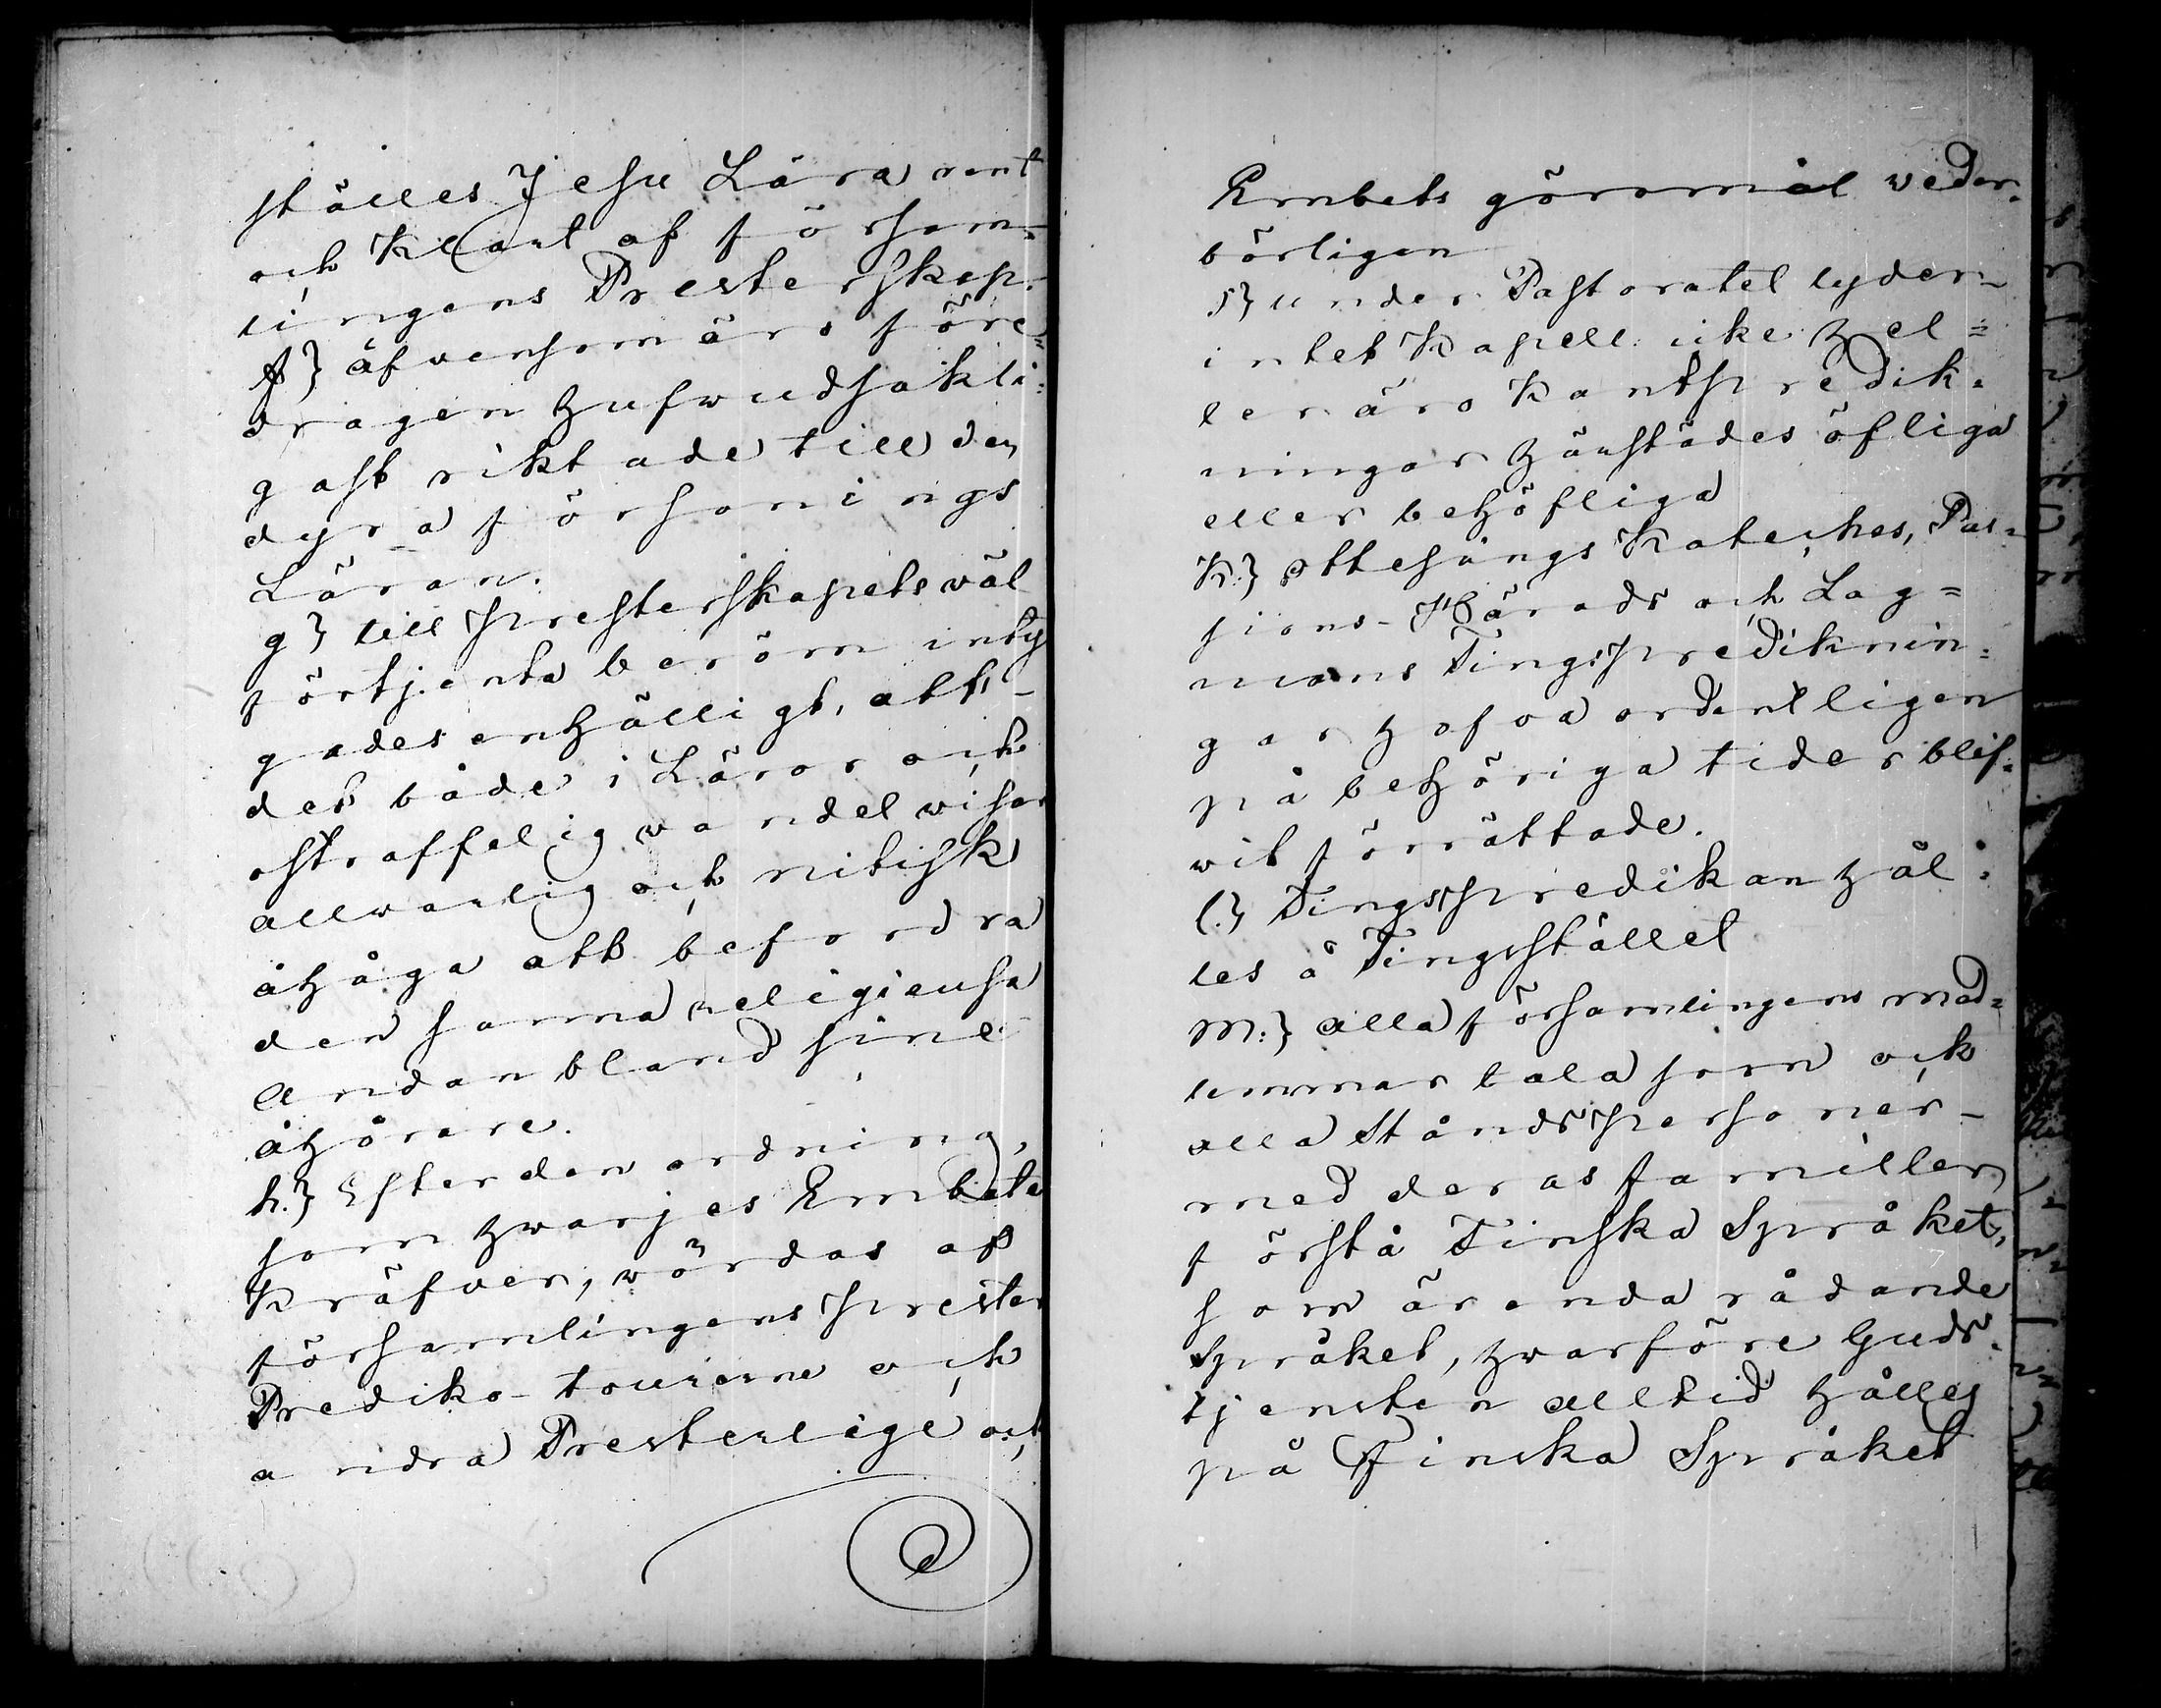 ställes Jesu Lära rent
och Klart af försam-
lingens Presterskap.
f} äfvensom äro före-
dragen hufwudsakli-
gast riktade till den
dyra försonings
Läran.
g} till Presterskapets wäl
förtjenta beröm inty
gades enhälligt, att
det både i Läror och
ostraffelig wandel wisar
allwarlig och nitisk
åhåga att befordra
den sanna religieusa
Andan bland sine
åhörare.
h.} Efter den ordning,
som hwarjes Embete
Kräfver, wördas af
församlingens Prester
Prediko-tourerne och
andra Presterlige och
Embets göromål weder-
börligen
i} under Pastoratet lyder
intet Kapell icke hel-
ler äro Kantpredik-
ningar härstädes öfliga
eller behöfliga
K.} ottesångs Kateches, Pas-
sions- Härads och Lag-
mans Tingsprediknin-
gar hafva ordentligen
på behöriga tider blif-
wit förrättade.
l.} Tingspredikan hål-
les å Tingsstället
m.} alla församlingens med-
lemmar tala som och
alla Ståndspersoner
med deras familler
förstå Finska Språket,
som är enda rådande
Språket, hwarföre Guds-
tjensten alltid hålles
på Finska Språket